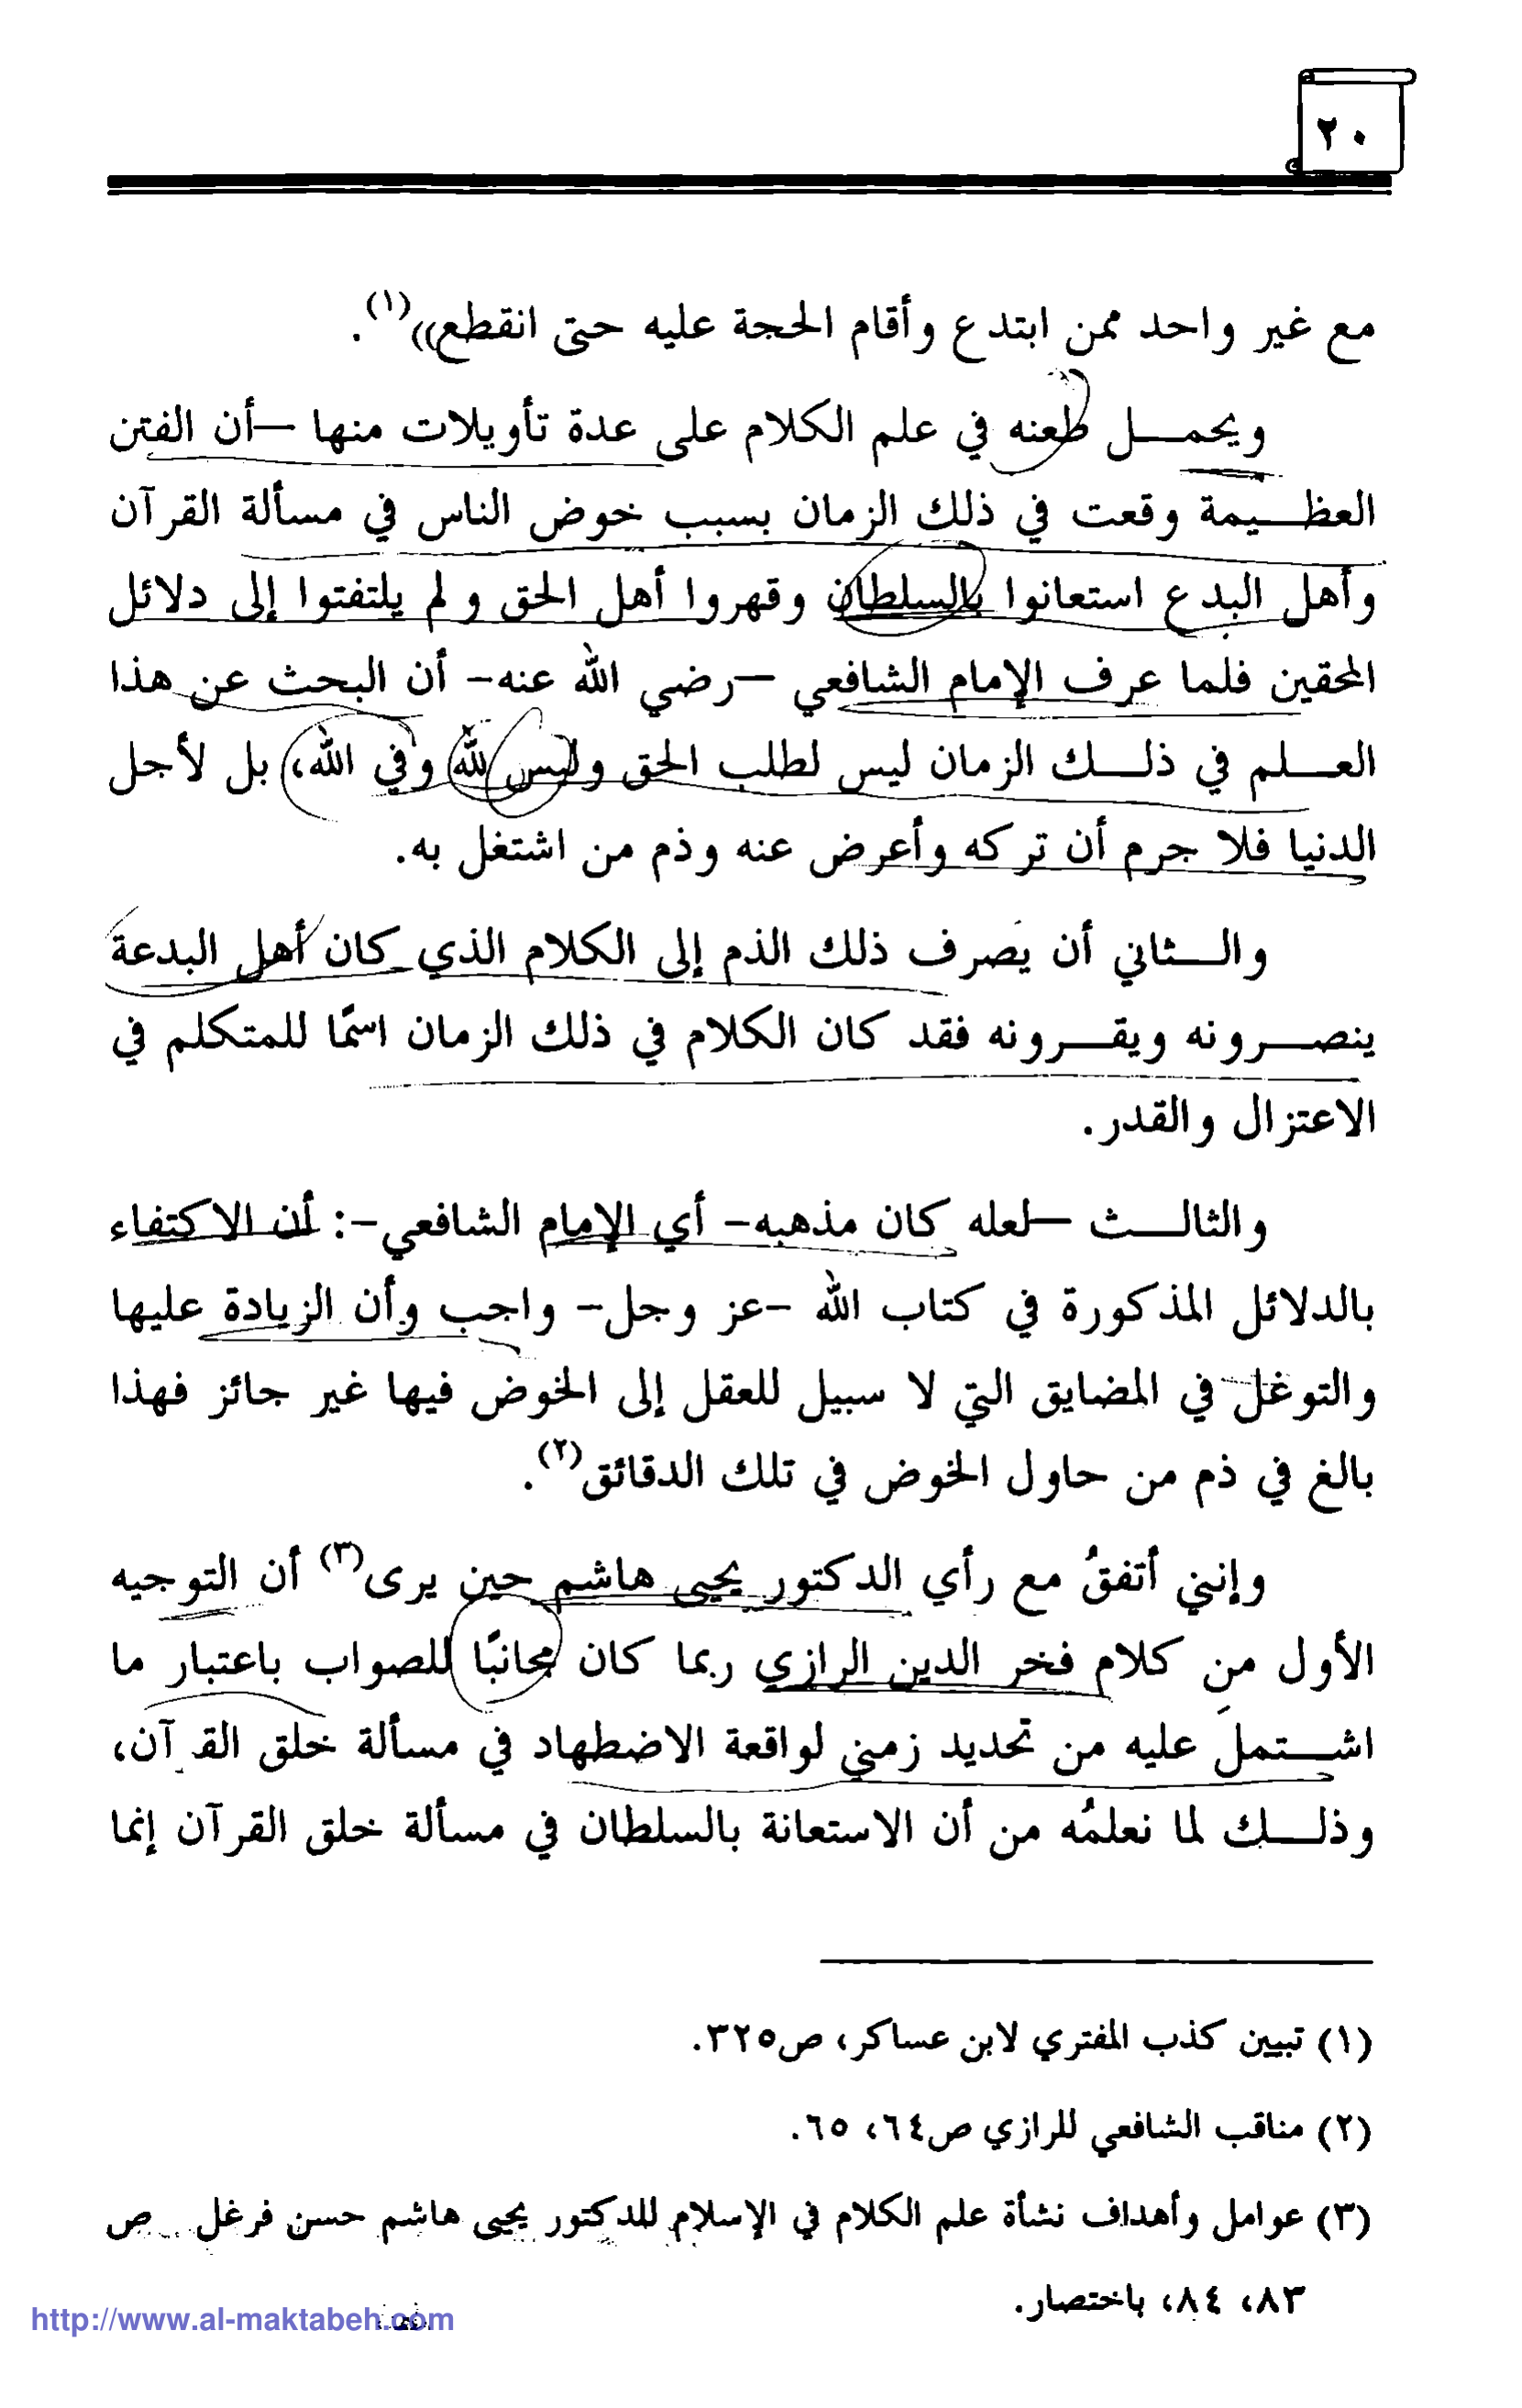 ٢٠
مع غير واحد ممن ابتدع وأقام الحجة عليه حتى انقطع»(١).
ويحمل طعنه في علم الكلام على عدة تأويلات منها –أن الفتن
العظيمة وقعت في ذلك الزمان بسبب خوض الناس في مسألة القرآن
وأهل البدع استعانوا بالسلطان وقهروا أهل الحق ولم يلتفتوا إلى دلائل
المحقين فلما عرف الإمام الشافعي –رضي الله عنه– أن البحث عن هذا
العلم في ذلك الزمان ليس لطلب الحق وليس لله وفي الله، بل لأجل
الدنيا فلا جرم أن تركه وأعرض عنه وذم من اشتغل به.
والثاني أن يَصرف ذلك الذم إلى الكلام الذي كان أهل البدعة
ينصرونه ويقرونه فقد كان الكلام في ذلك الزمان اسمًا للمتكلم في
الاعتزال والقدر.
والثالث –لعله كان مذهبه– أي الإمام الشافعي–: أن الاكتفاء
بالدلائل المذكورة في كتاب الله –عز وجل– واجب وأن الزيادة عليها
والتوغل في المضايق التي لا سبيل للعقل إلى الخوض فيها غير جائز فهذا
بالغ في ذم من حاول الخوض في تلك الدقائق(٢).
وإنني أتفقُ مع رأي الدكتور يحيى هاشم حين يرى(٣) أن التوجيه
الأول من كلام فخر الدين الرازي ربما كان مجانبًا للصواب باعتبار ما
اشتملَ عليه من تحديد زمني لواقعة الاضطهاد في مسألة خلق القرآن،
وذلك لما نعلمُه من أن الاستعانة بالسلطان في مسألة خلق القرآن إنما
(١) تبيين كذب المفتري لابن عساكر، ص٣٢٥.
(٢) مناقب الشافعي للرازي ص٦٤، ٦٥.
(٣) عوامل وأهداف نشأة علم الكلام في الإسلام للدكتور يحيى هاشم حسن فرغل ص
٨٣، ٨٤، باختصار.
http://www.al-maktabeh.com